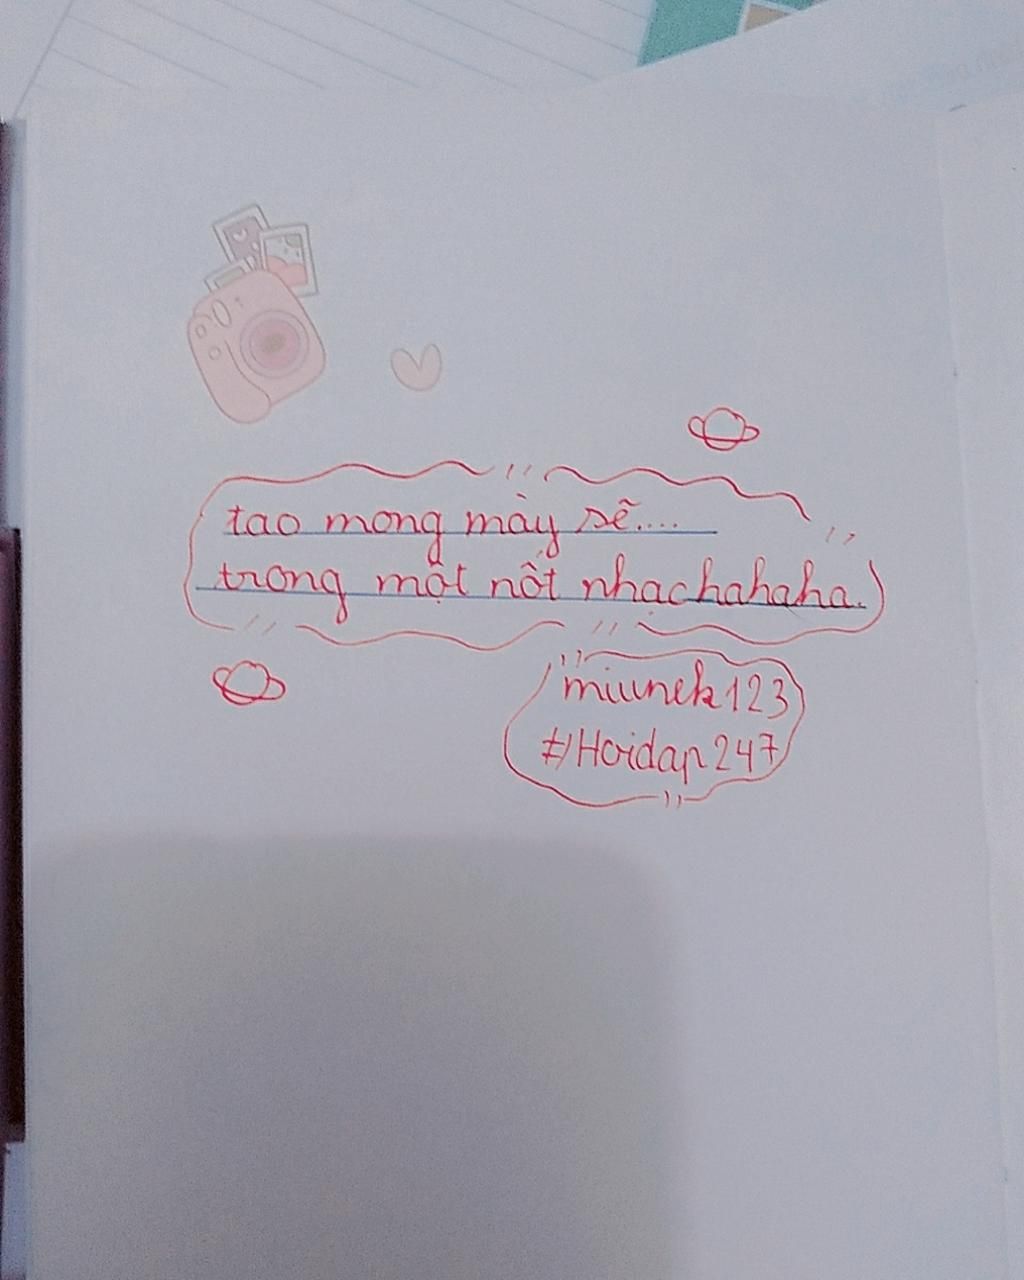 tao mong mày sẽ....
trong một nốt nhạc hahaha.
miunek123
#Hoidap247